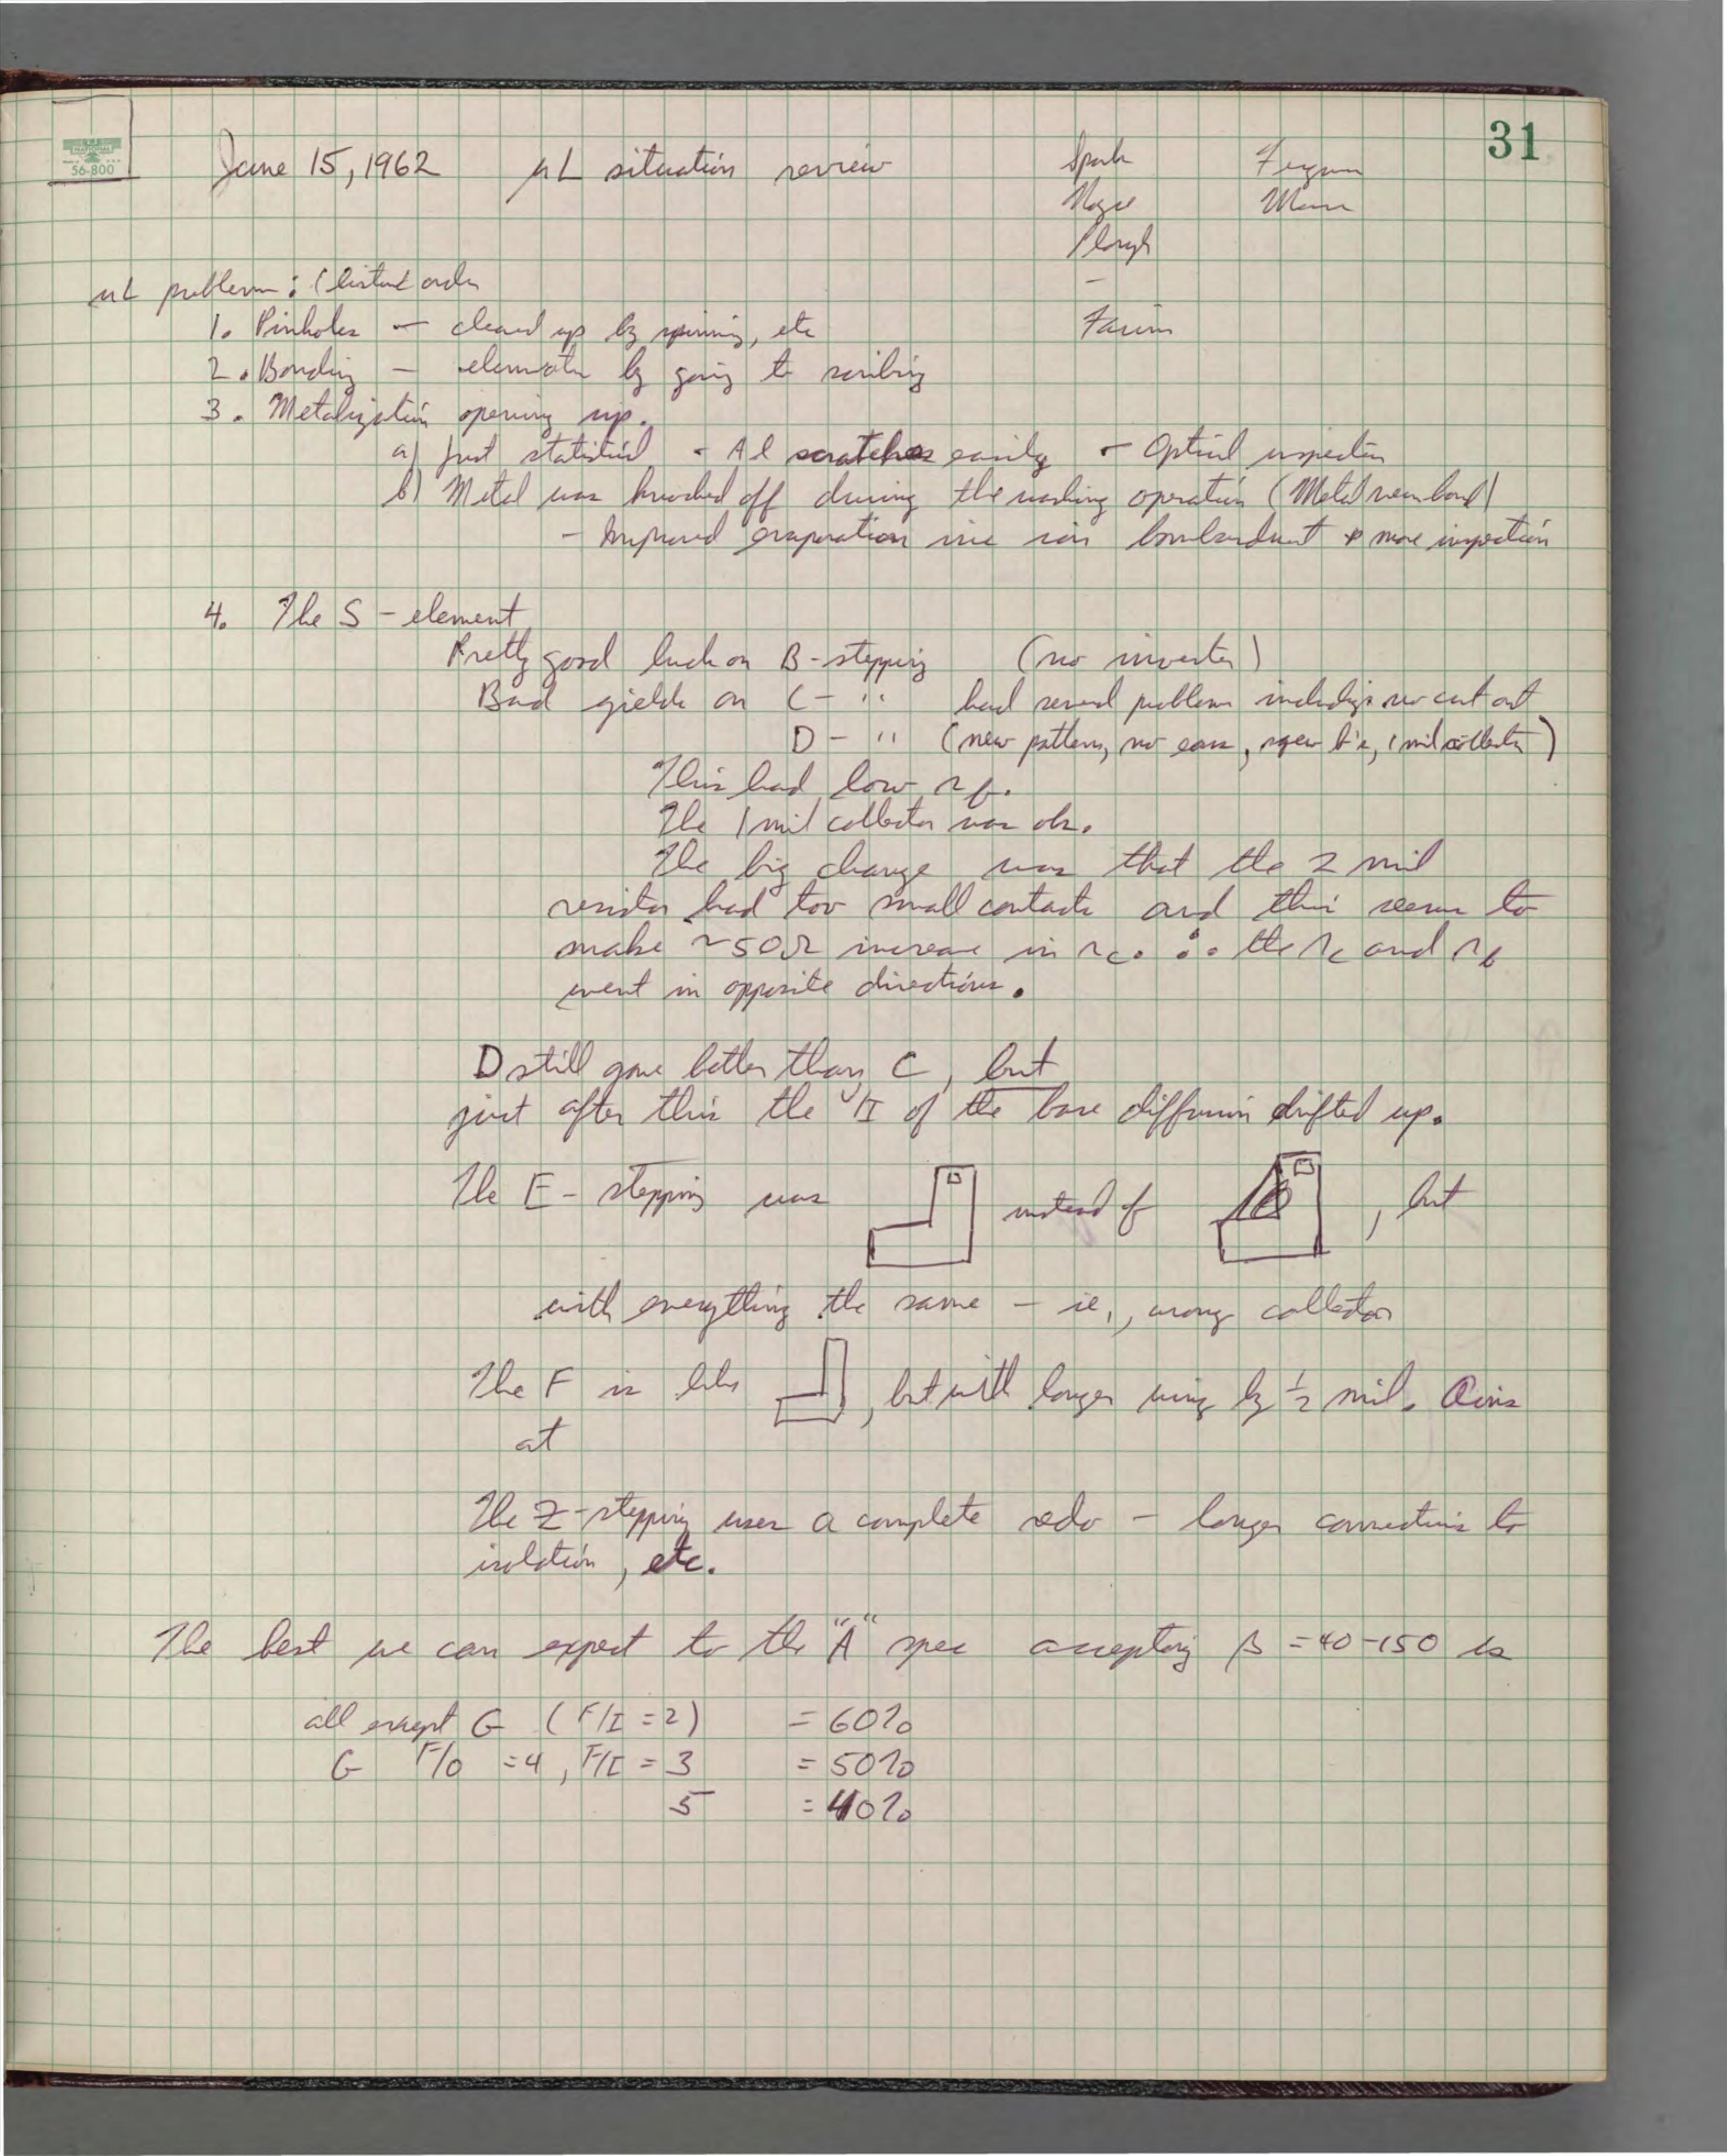 31
NATIONAL
56-800
June 15, 1962 µL situation review
Spark
Noyce
Plough
-
Farina
Ferguson
Moore
µL problem: (listed order
1. Pinholes — cleaned up by spinning, etc
2. Bonding — eliminate by going to scribing
3. Metalization opening up.
a) Just statistical - Al scratches easily - Optical inspection
b) Metal was knocked off during the washing operation (Metal near bond)
- Improved evaporation ion bombardment & more inspection
4. The S-element
Pretty good luck on B-stepping (no inverter)
Bad yields on C- " had several problems including no cut out
D- " (new pattern, no ears, 1 mil collector)
This had low rb.
The 1 mil collector was ok.
The big change was that the 2 mil
resistor had too small contacts and this seems to
make ~50Ω increase in rc. ∴ the rc and rb
went in opposite directions.
D still gave better than C, but
just after this the V/I of the base diffusion drifted up.
The E-stepping was instead of , but
with everything the same — ie., wrong collector
The F is like , but with longer wing by ½ mil.
at
The Z-stepping uses a complete redo — longer connections to
isolation, etc.
The best we can expect to the "A" spec accepting β = 40-150 is
all except G (F/I = 2) = 60%
G F/O = 4, F/I = 3 = 50%
5 = 40%